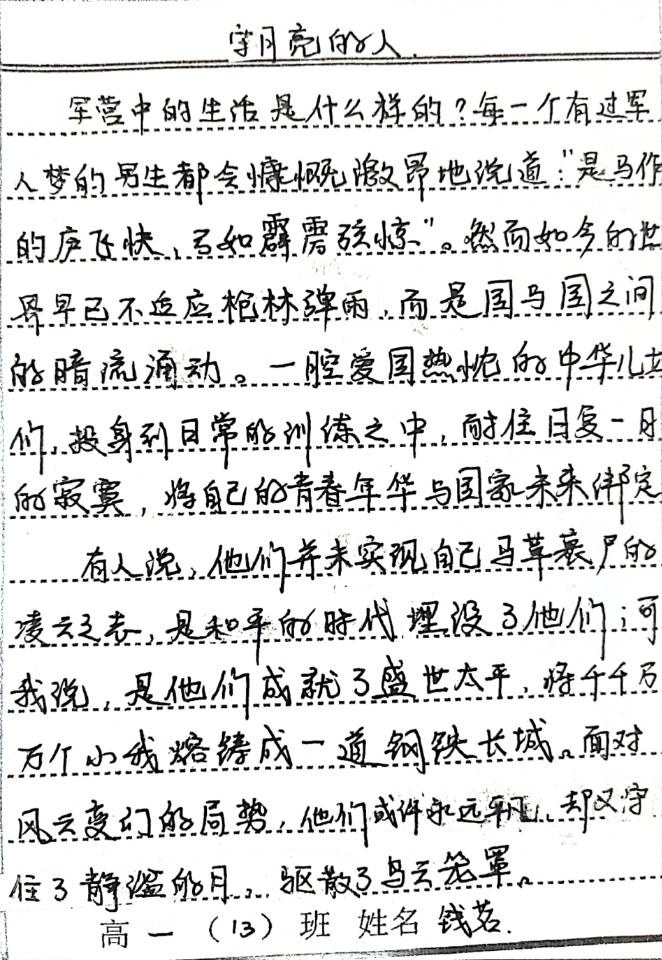 守月亮的人.
军营中的生活是什么样的？每一个有过军
人梦的男生都会慷慨激昂地说道："是马作
的庐飞快，弓如霹雳弦惊"。然而如今的世
界早已不适应枪林弹雨，而是国与国之间
的暗流涌动。一腔爱国热忱的中华儿女
们，投身到日常的训练之中，耐住日复一日
的寂寞，将自己的青春年华与国家未来绑定
有人说，他们并未实现自己马革裹尸的
凌云之志，是和平的时代埋没了他们；可
我说，是他们成就了盛世太平，将千千万
万个小我熔铸成一道钢铁长城。面对
风云变幻的局势，他们或许永远平凡，却又守
住了静谧的月，驱散了乌云笼罩。
高一（13）班 姓名 钱茗.